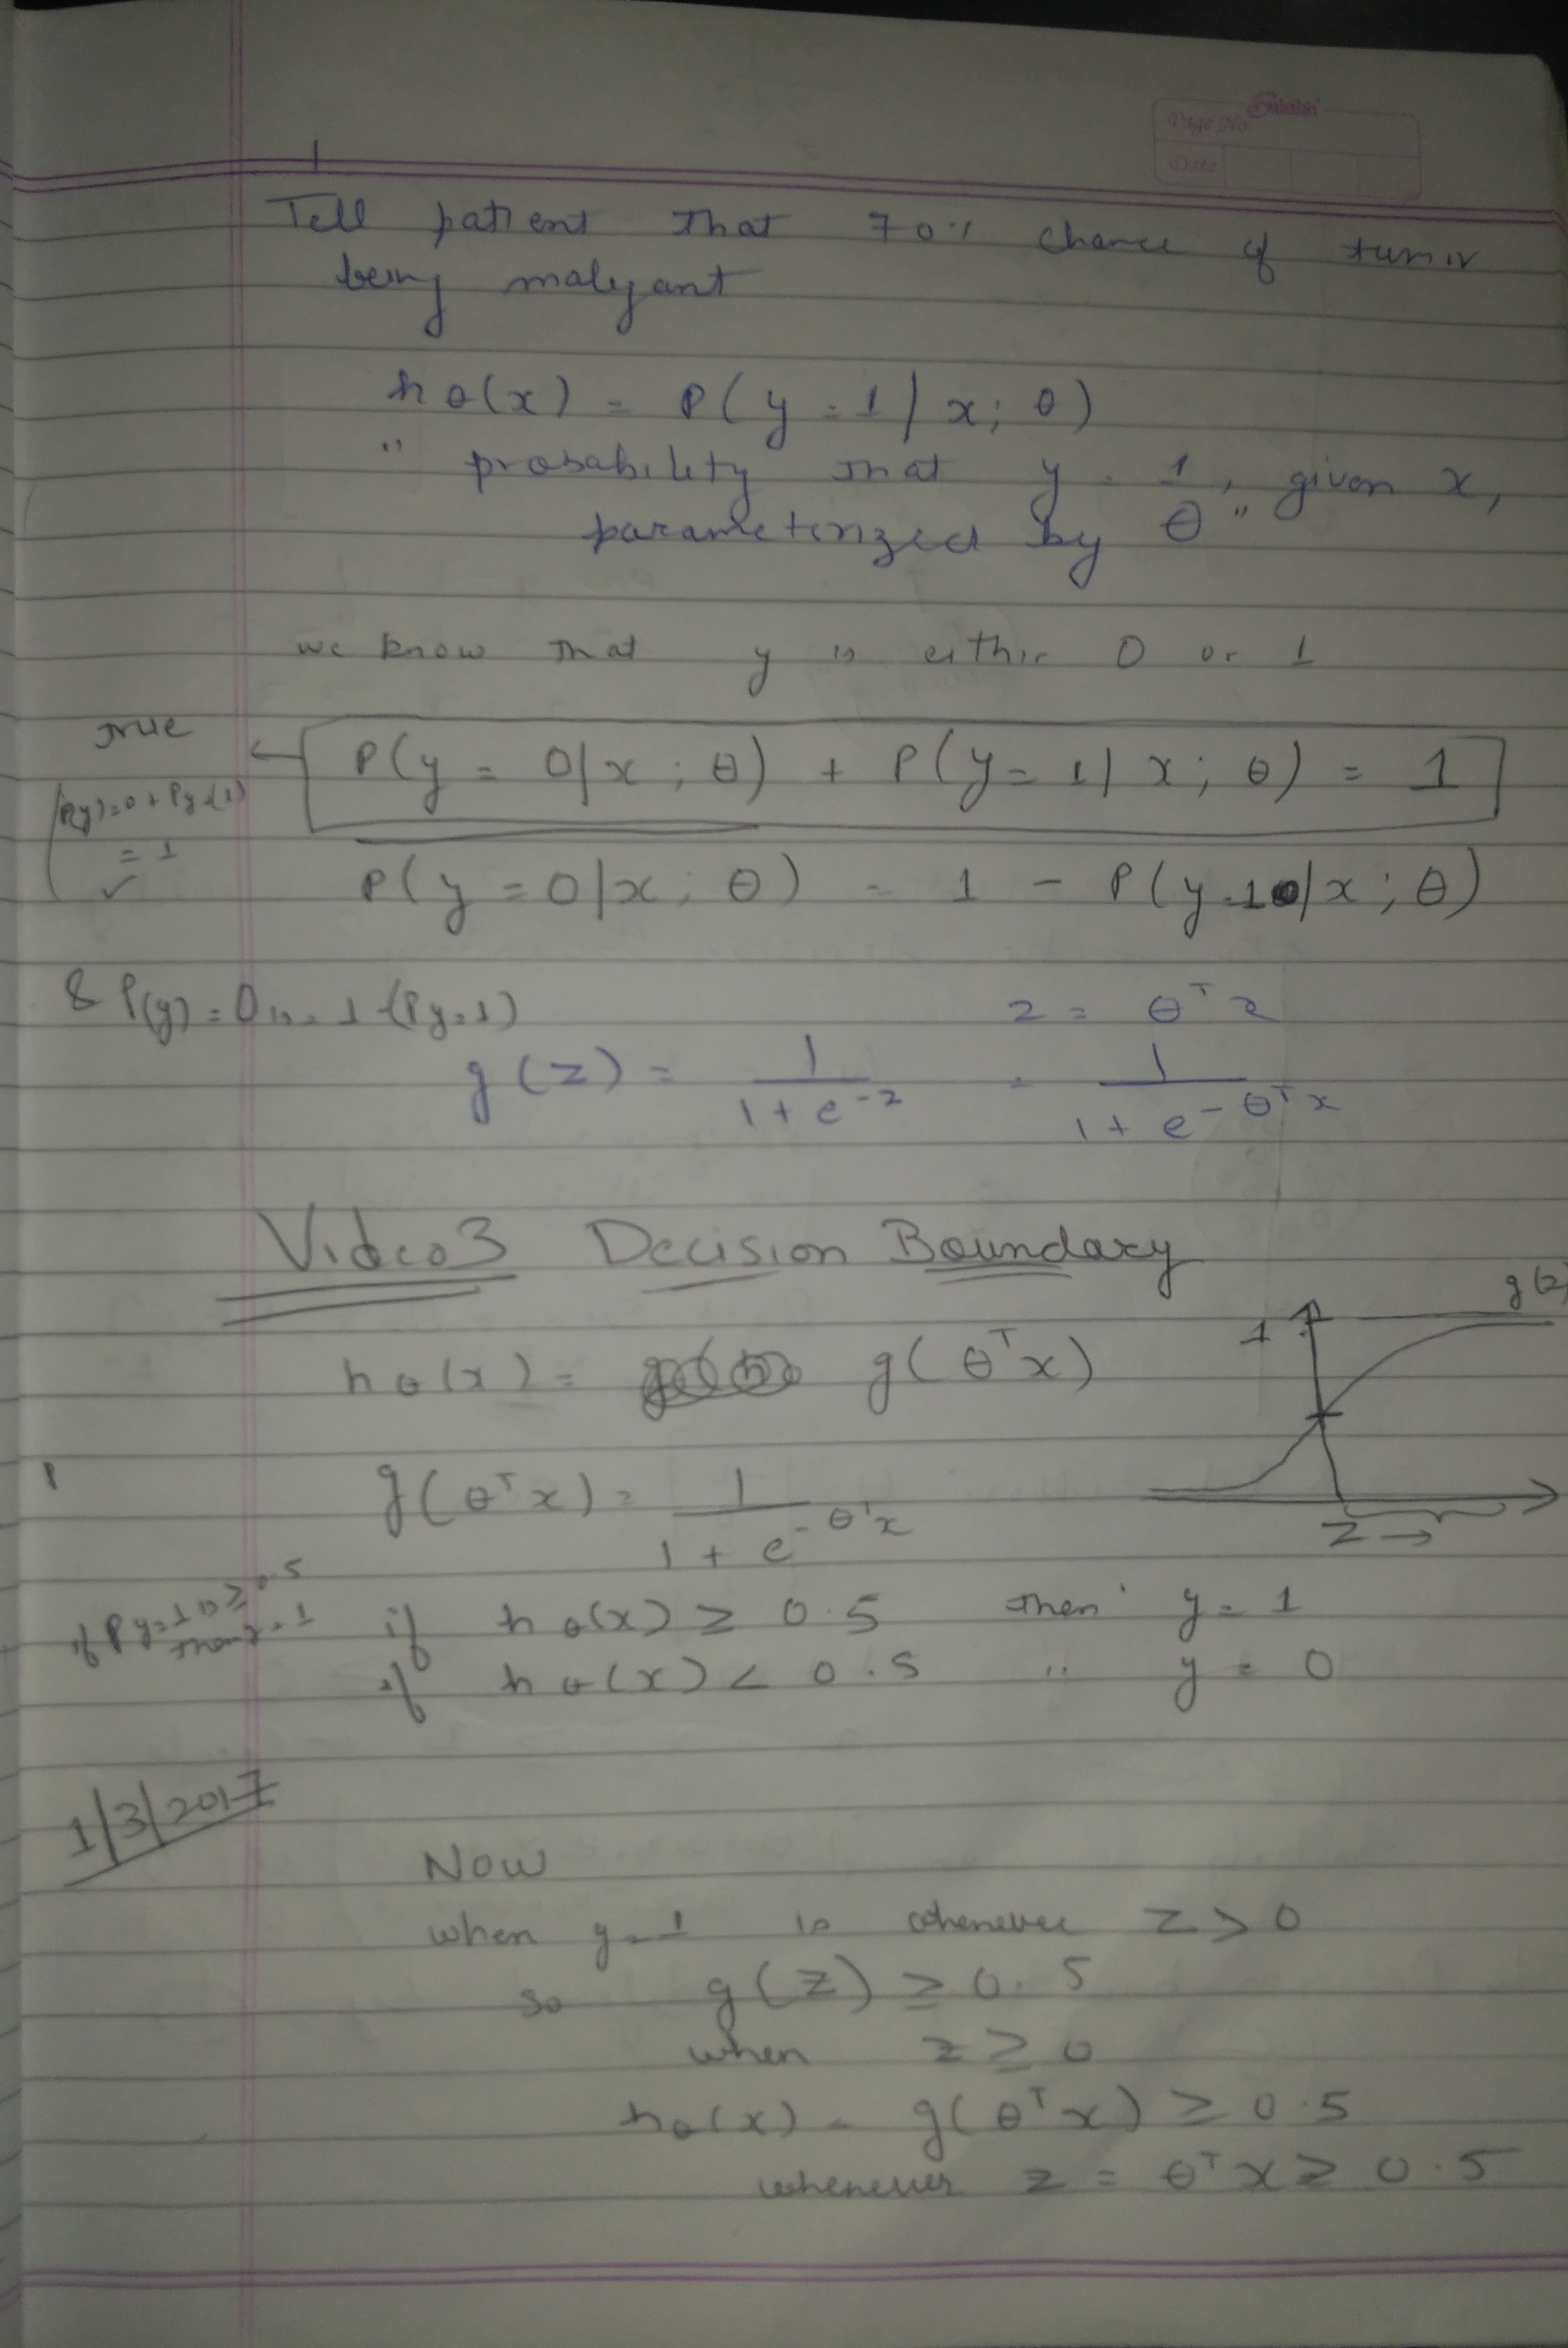 Sundaram
Page No.
Date
Tell patient that 70% chance of tumor
being malygant
hθ(x) = P(y=1|x; θ)
"probability that y = 1, given x,
parametrized by θ"
we know that y is either 0 or 1
true
P(y = 0|x; θ) + P(y = 1|x; θ) = 1
P(y)=0 + Py=(1)
= 1
✓
P(y = 0|x; θ) = 1 - P(y=1|x; θ)
& P(y)=0 is = 1-(Py=1)
z = θᵀx
g(z) = 1/(1 + e^-z) = 1/(1 + e^-θᵀx)
Video 3 Decision Boundary
g(z)
1
hθ(x) = g(θᵀx)
g(θᵀx) = 1/(1 + e^-θᵀx)
z →
if P y=1 is ≥ 0.5
then y=1
if hθ(x) ≥ 0.5 then y = 1
if hθ(x) < 0.5 " y = 0
1/3/2017
Now
when y=1 is whenever z > 0
so g(z) ≥ 0.5
when z ≥ 0
hθ(x) = g(θᵀx) ≥ 0.5
whenever z = θᵀx ≥ 0.5